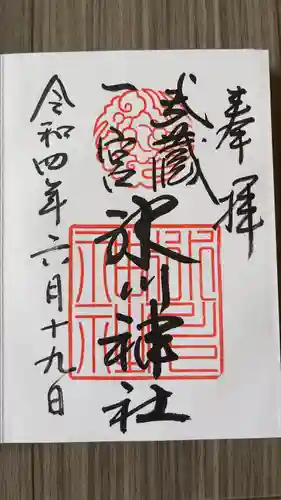 奉拝
武蔵
一宮
氷川神社
令和四年六月十九日
氷川神社